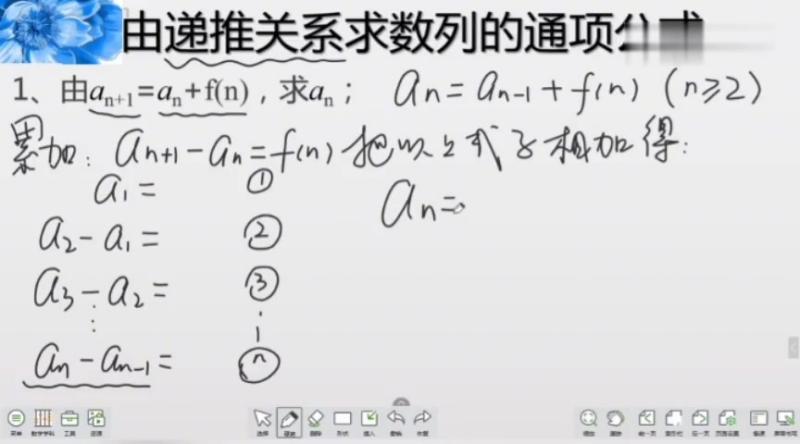 由递推关系求数列的通项公式
1、由aₙ₊₁=aₙ+f(n)，求aₙ； aₙ=aₙ₋₁+f(n) (n≥2)
累加: aₙ₊₁-aₙ=f(n) 把以上式子相加得:
a₁= ①
aₙ=
a₂-a₁= ②
a₃-a₂= ③
⋮
aₙ-aₙ₋₁= ⓝ